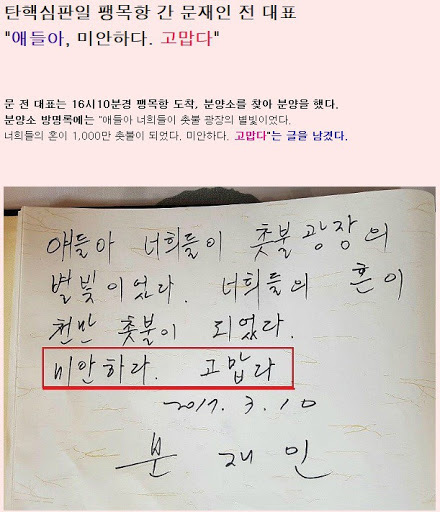 탄핵심판일 팽목항 간 문재인 전 대표
"얘들아, 미안하다. 고맙다"
문 전 대표는 16시10분경 팽목항 도착, 분양소를 찾아 분양을 했다.
분양소 방명록에는 "얘들아 너희들이 촛불 광장의 별빛이었다.
너희들의 혼이 1,000만 촛불이 되었다. 미안하다. 고맙다"는 글을 남겼다.
얘들아 너희들이 촛불광장의
별빛이었다. 너희들의 혼이
천만 촛불이 되었다.
미안하다. 고맙다
2017. 3. 10
문재인